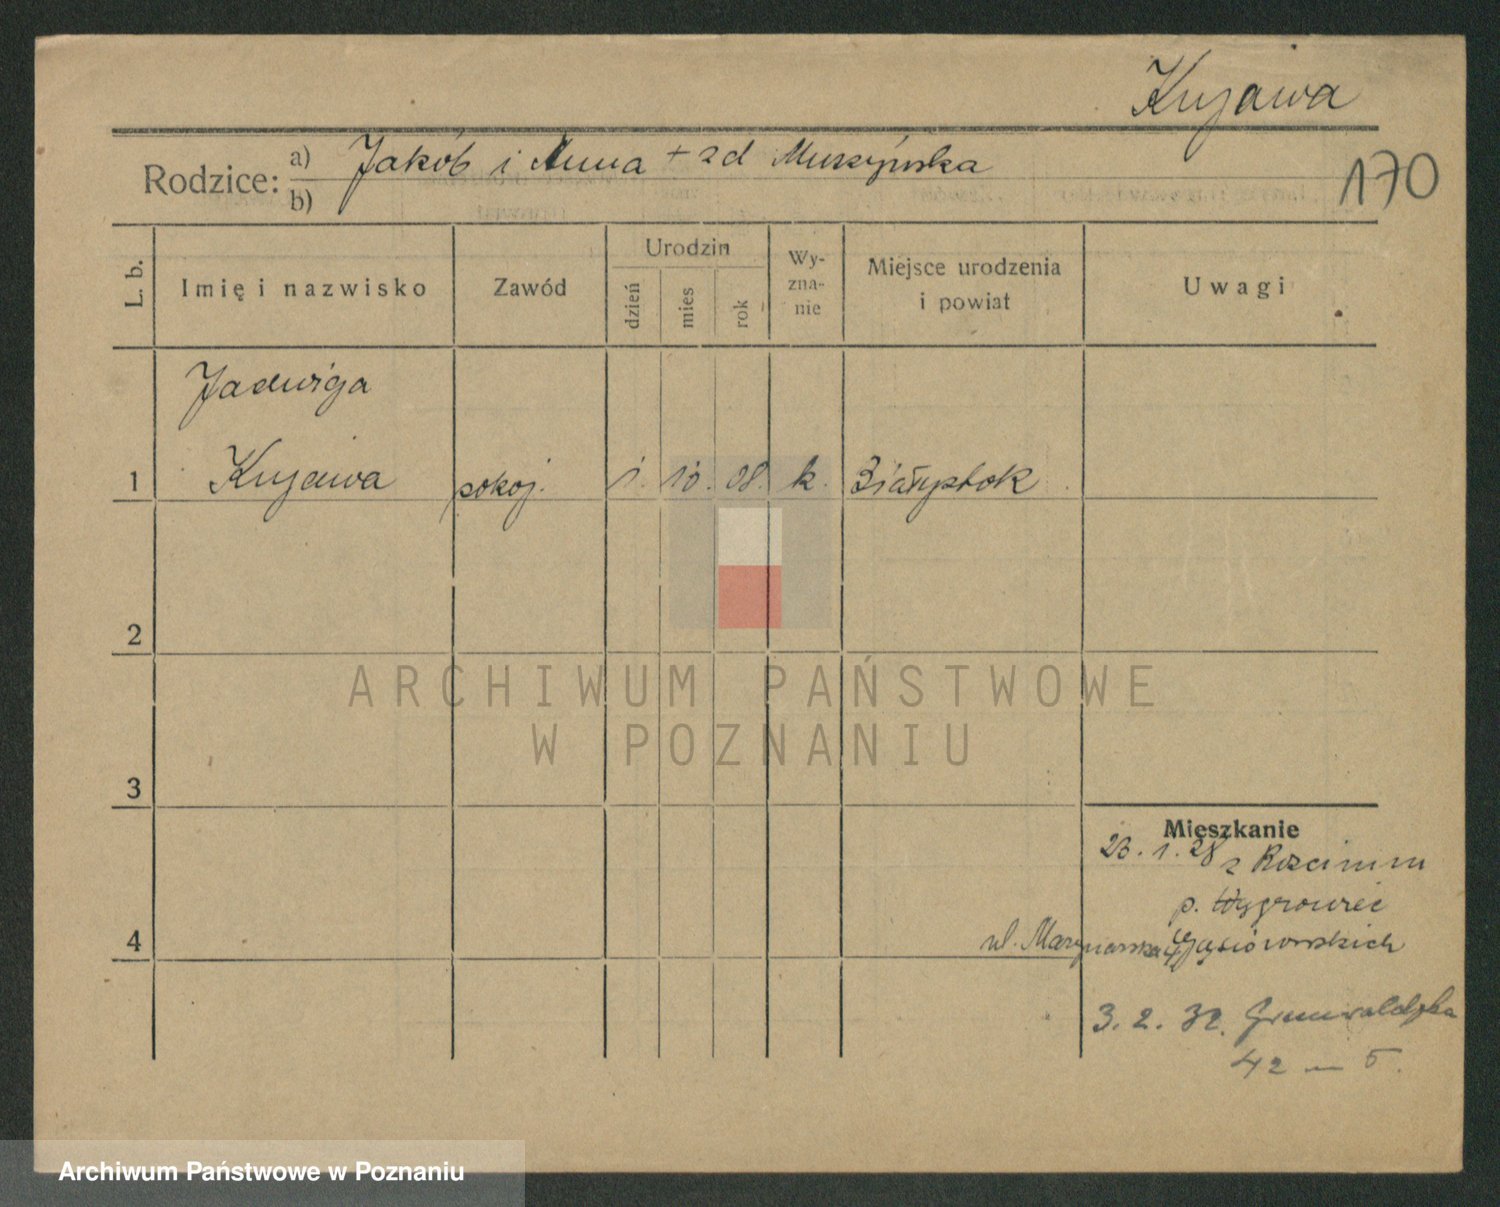 Kujawa
Rodzice: a) Jakób i Anna + zd Muszyńska
b)
170
L. b.
Imię i nazwisko
Zawód
Urodzin
dzień
mies
rok
Wy-
zna-
nie
Miejsce urodzenia
i powiat
Uwagi
Jadwiga
1 Kujawa pokoj. 1. 10. 08. k. Białystok
2
ARCHIWUM PAŃSTWOWE
W POZNANIU
3
Mieszkanie
23. 1. 28 z
p. Wągrowiec
4 ul.
3. 2. 32. Grunwaldzka
42 — 5.
Archiwum Państwowe w Poznaniu